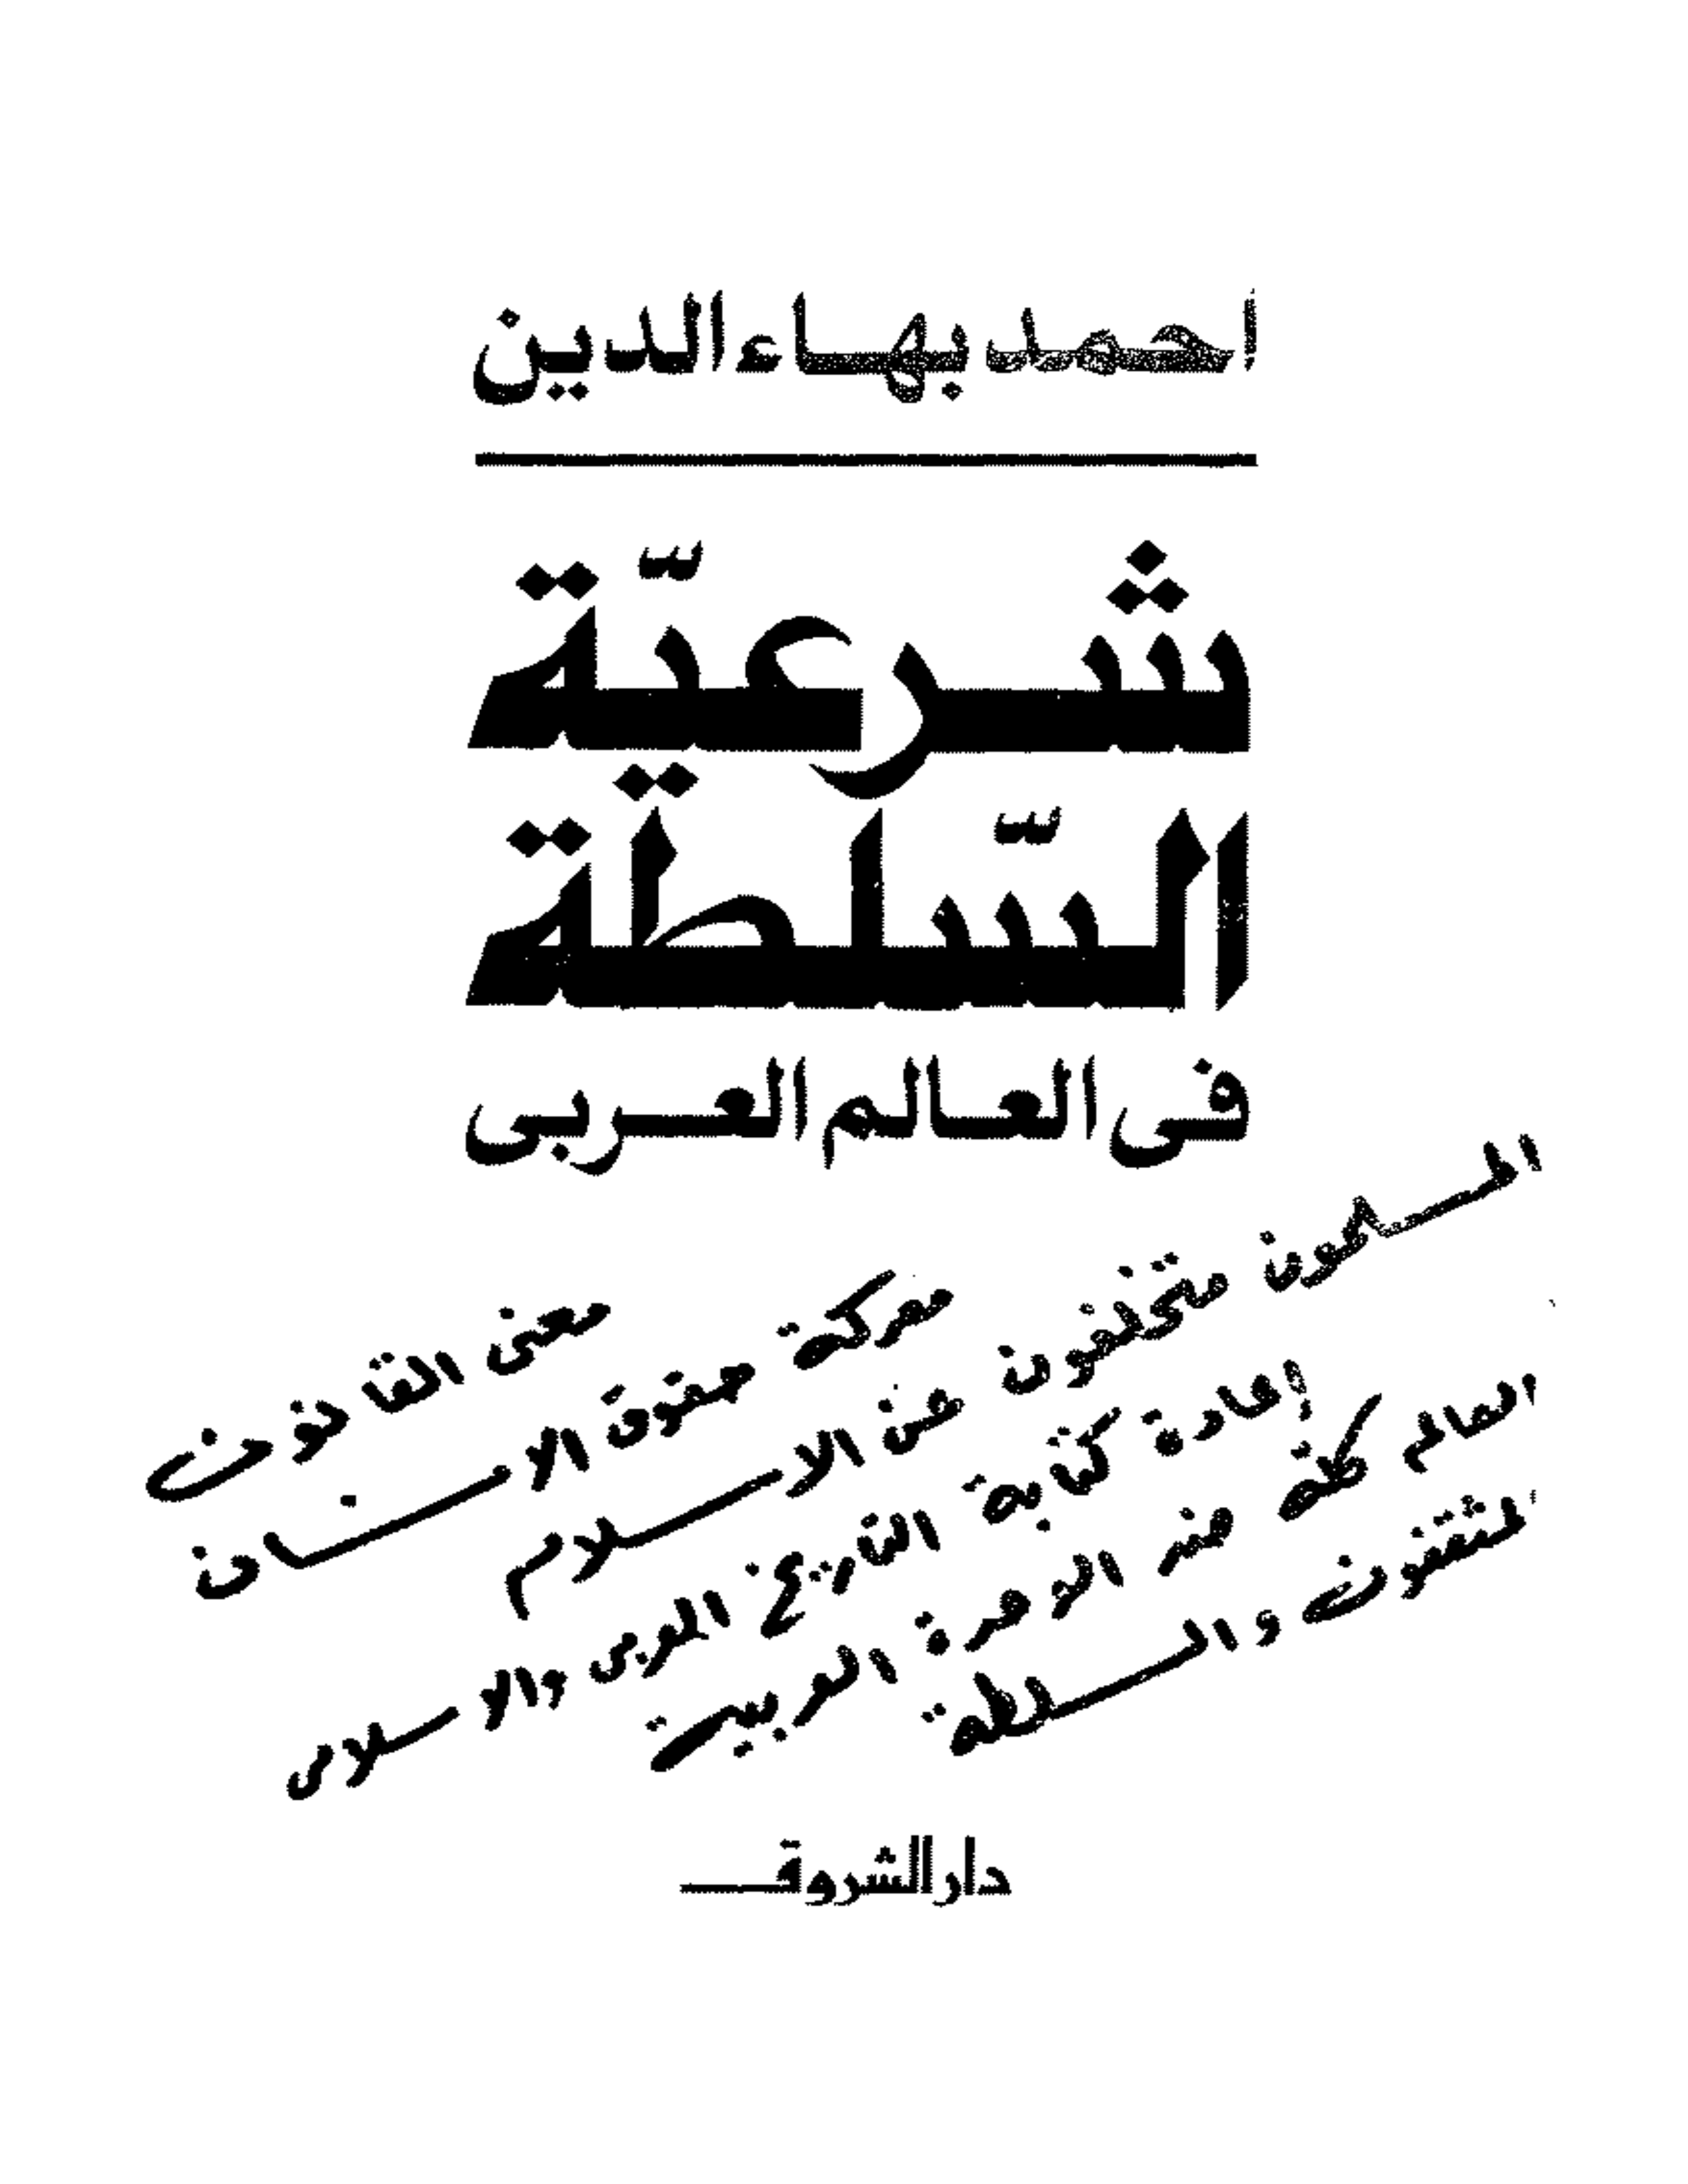 احمد بهاء الدين
شرعيّة
السّلطة
فى العالم العربى
معنى القانون
معركة حقوق الانسان
المسلمون متخلفون عن الاسلام
إعادة كتابة التاريخ العربى والاسلامى
العالم كله ضد الوحدة العربية
المثقفون والسلطة
دار الشروق